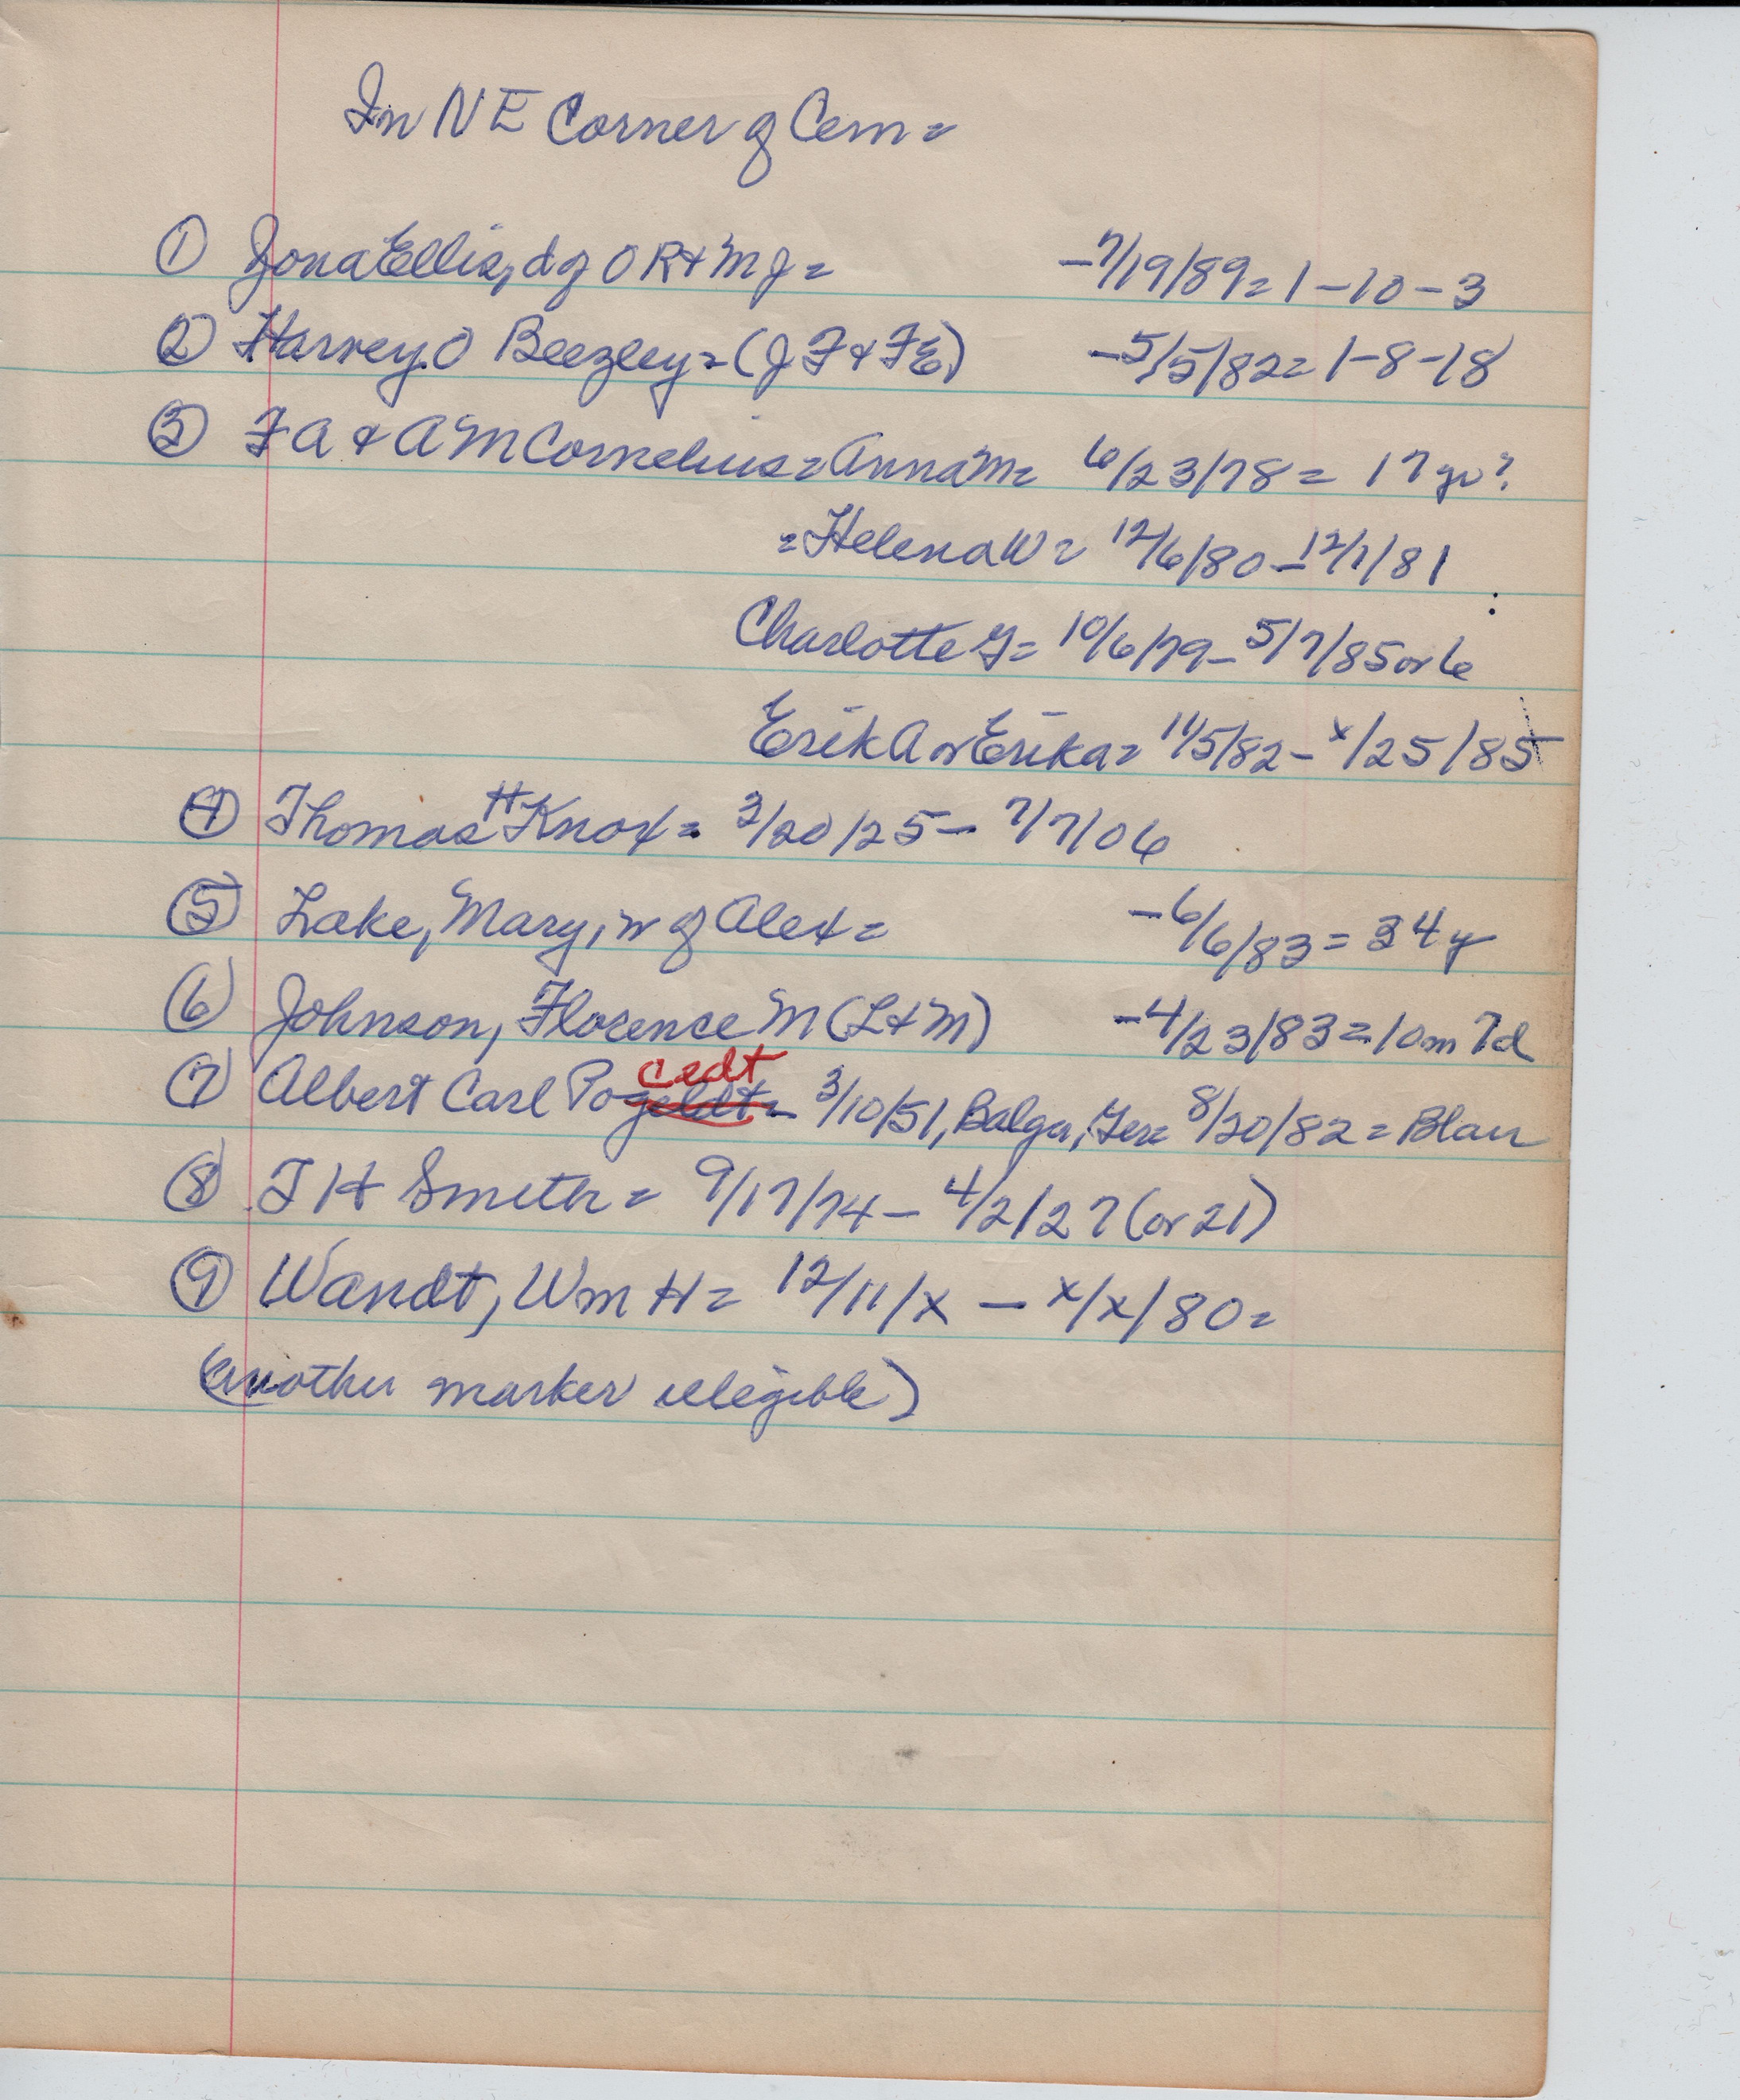 In N E Corner of Cem =
① Jona Ellis, d of O R + M J = - 7/19/89 = 1 - 10 - 3
② Harvey O Beezley = (J F + F E) - 5/5/82 = 1 - 8 - 18
③ F A + A M Cornelius = Anna M = 6/23/78 = 17 yr?
= Helena W = 12/6/80 - 12/1/81
Charlotte G = 10/6/79 - 5/7/85 or 6
Erik A or Erika = 11/5/82 - x/25/85
④ Thomas H Knox = 3/20/25 - 7/7/06
⑤ Lake, Mary, w of Alex = - 6/6/83 = 34 y
⑥ Johnson, Florence M (L + M) - 4/23/83 = 10m 7d
cedt
⑦ Albert Carl Pogeldt = 3/10/51, Balga, Ger = 8/20/82 = Blau
⑧ T H Smith = 9/17/74 - 4/2/27 (or 21)
⑨ Wandt, Wm H = 12/11/x - x/x/80 =
(another marker illegible)